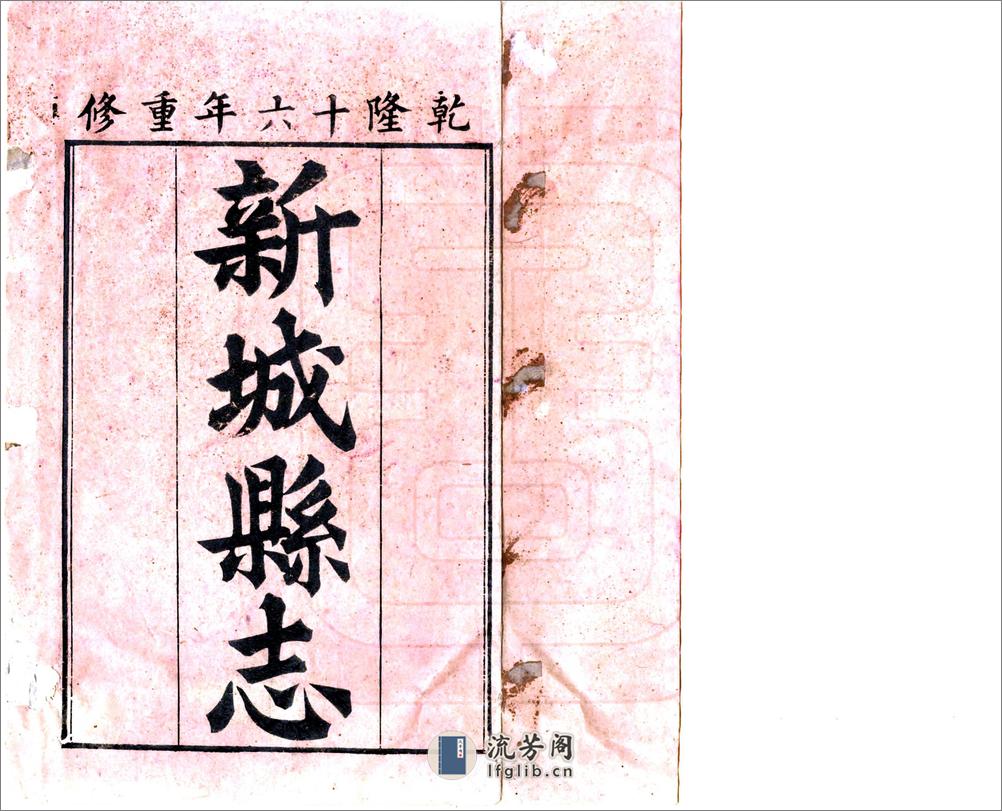 乾隆十六年重修
新城縣志
流芳阁
lfglib.cn